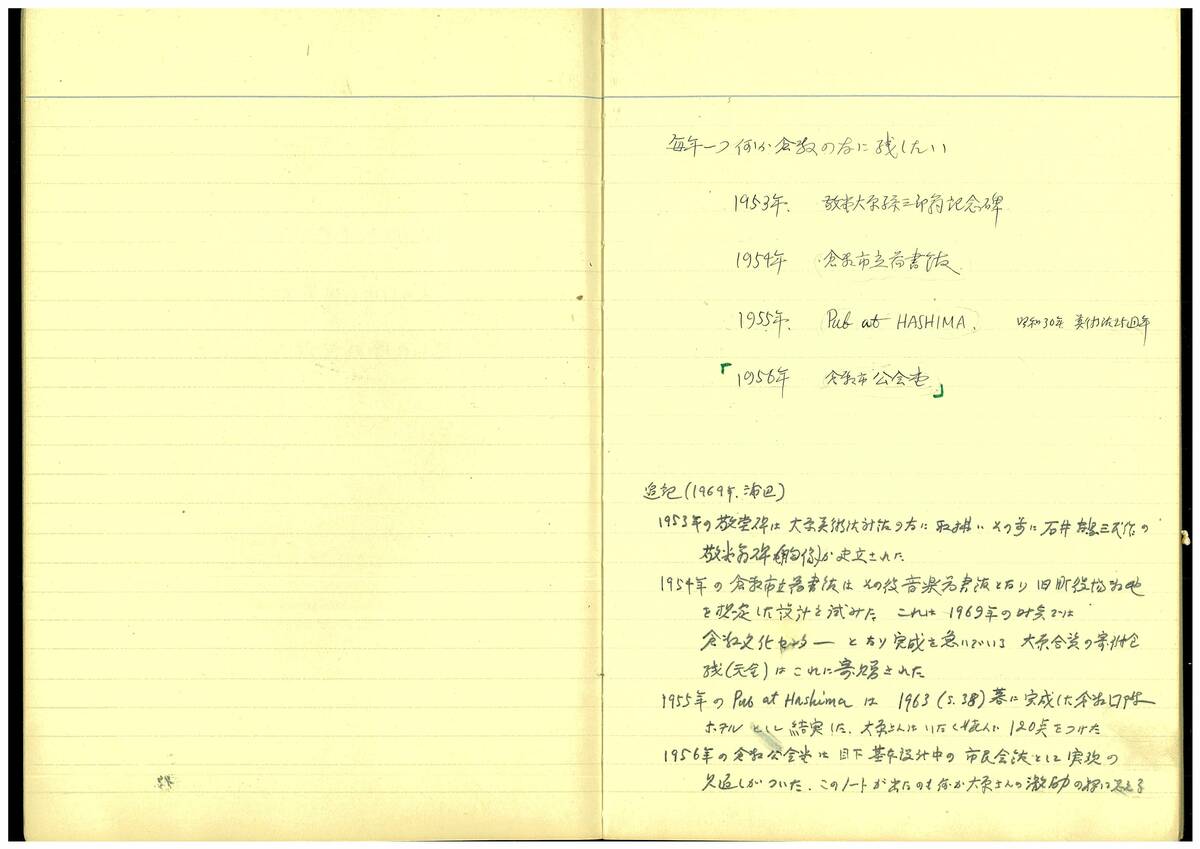 毎年一つ何か倉敷の為に残したい
1953年. 敬堂大原孫三郎翁記念碑
1954年 倉敷市立図書館
1955年. Pub at HASHIMA. 昭和30年 美術館25周年
「1956年 倉敷市公会堂」
追記(1969年.浦辺)
1953年の敬堂碑は大原美術館分館の方に その前に石井
敬堂翁碑(胸像)が建立された
1954年の倉敷市立図書館はその後音楽図書館となり旧町役場
を想定した設計を試みた これは1969年の時点では
倉敷文化センターとなり完成を急いでいる 大原会談の寄附金
残(元金)はこれに された
1955年のPub at Hashima は 1963(S.38)暮に完成した倉敷国際
ホテルとして結実した. 大原さんは 120点をつけた
1956年の倉敷公会堂は目下基本設計中の市民会館として実現の
見通しがついた. このノートが出たのも何か大原さんの激励の様に思える